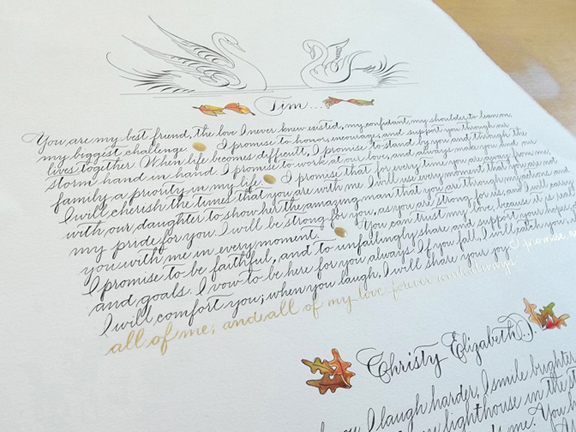 Tim...
You are my best friend, the love I never knew existed, my confidant, my shoulder to lean on,
my biggest challenge I promise to honor, encourage, and support you through our
lives together. When life becomes difficult, I promise to stand by you and through the
storm hand in hand I promise to work at our love, and always make you and our
family a priority in my life I promise that for every time you are away from me,
I will cherish the times that you are with me I will use every moment that you are not
with our daughter to show her the amazing man that you are through my actions and
my pride for you I will be strong for you, as you are strong for us, and I will carry
you with me in every moment. You can trust my love, because it is
I promise to be faithful, and to unfailingly share and support your hopes
and goals. I vow to be here for you always. If you fall, I will catch you,
I will comfort you; when you laugh, I will share your joy I promise
all of me, and all of my love forever and always
Christy Elizabeth...
you I laugh harder, I smile brighter
lighthouse in the
me. You